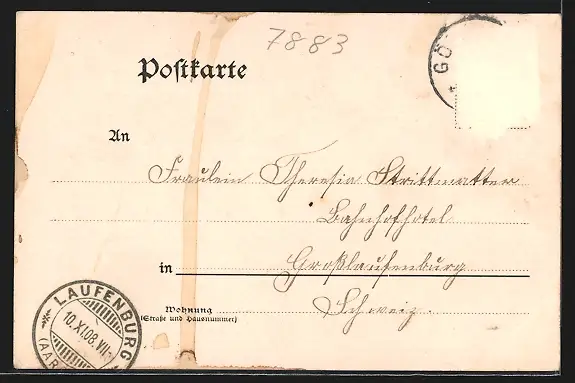 7883
Postkarte
GÖ
An
Fraulein Theresia Strittmatter
Bahnhofhotel
in Großlaufenburg
Wohnung
(Straße und Hausnummer)
Schweiz.
LAUFENBURG
10.XI.08.VII
(AAR